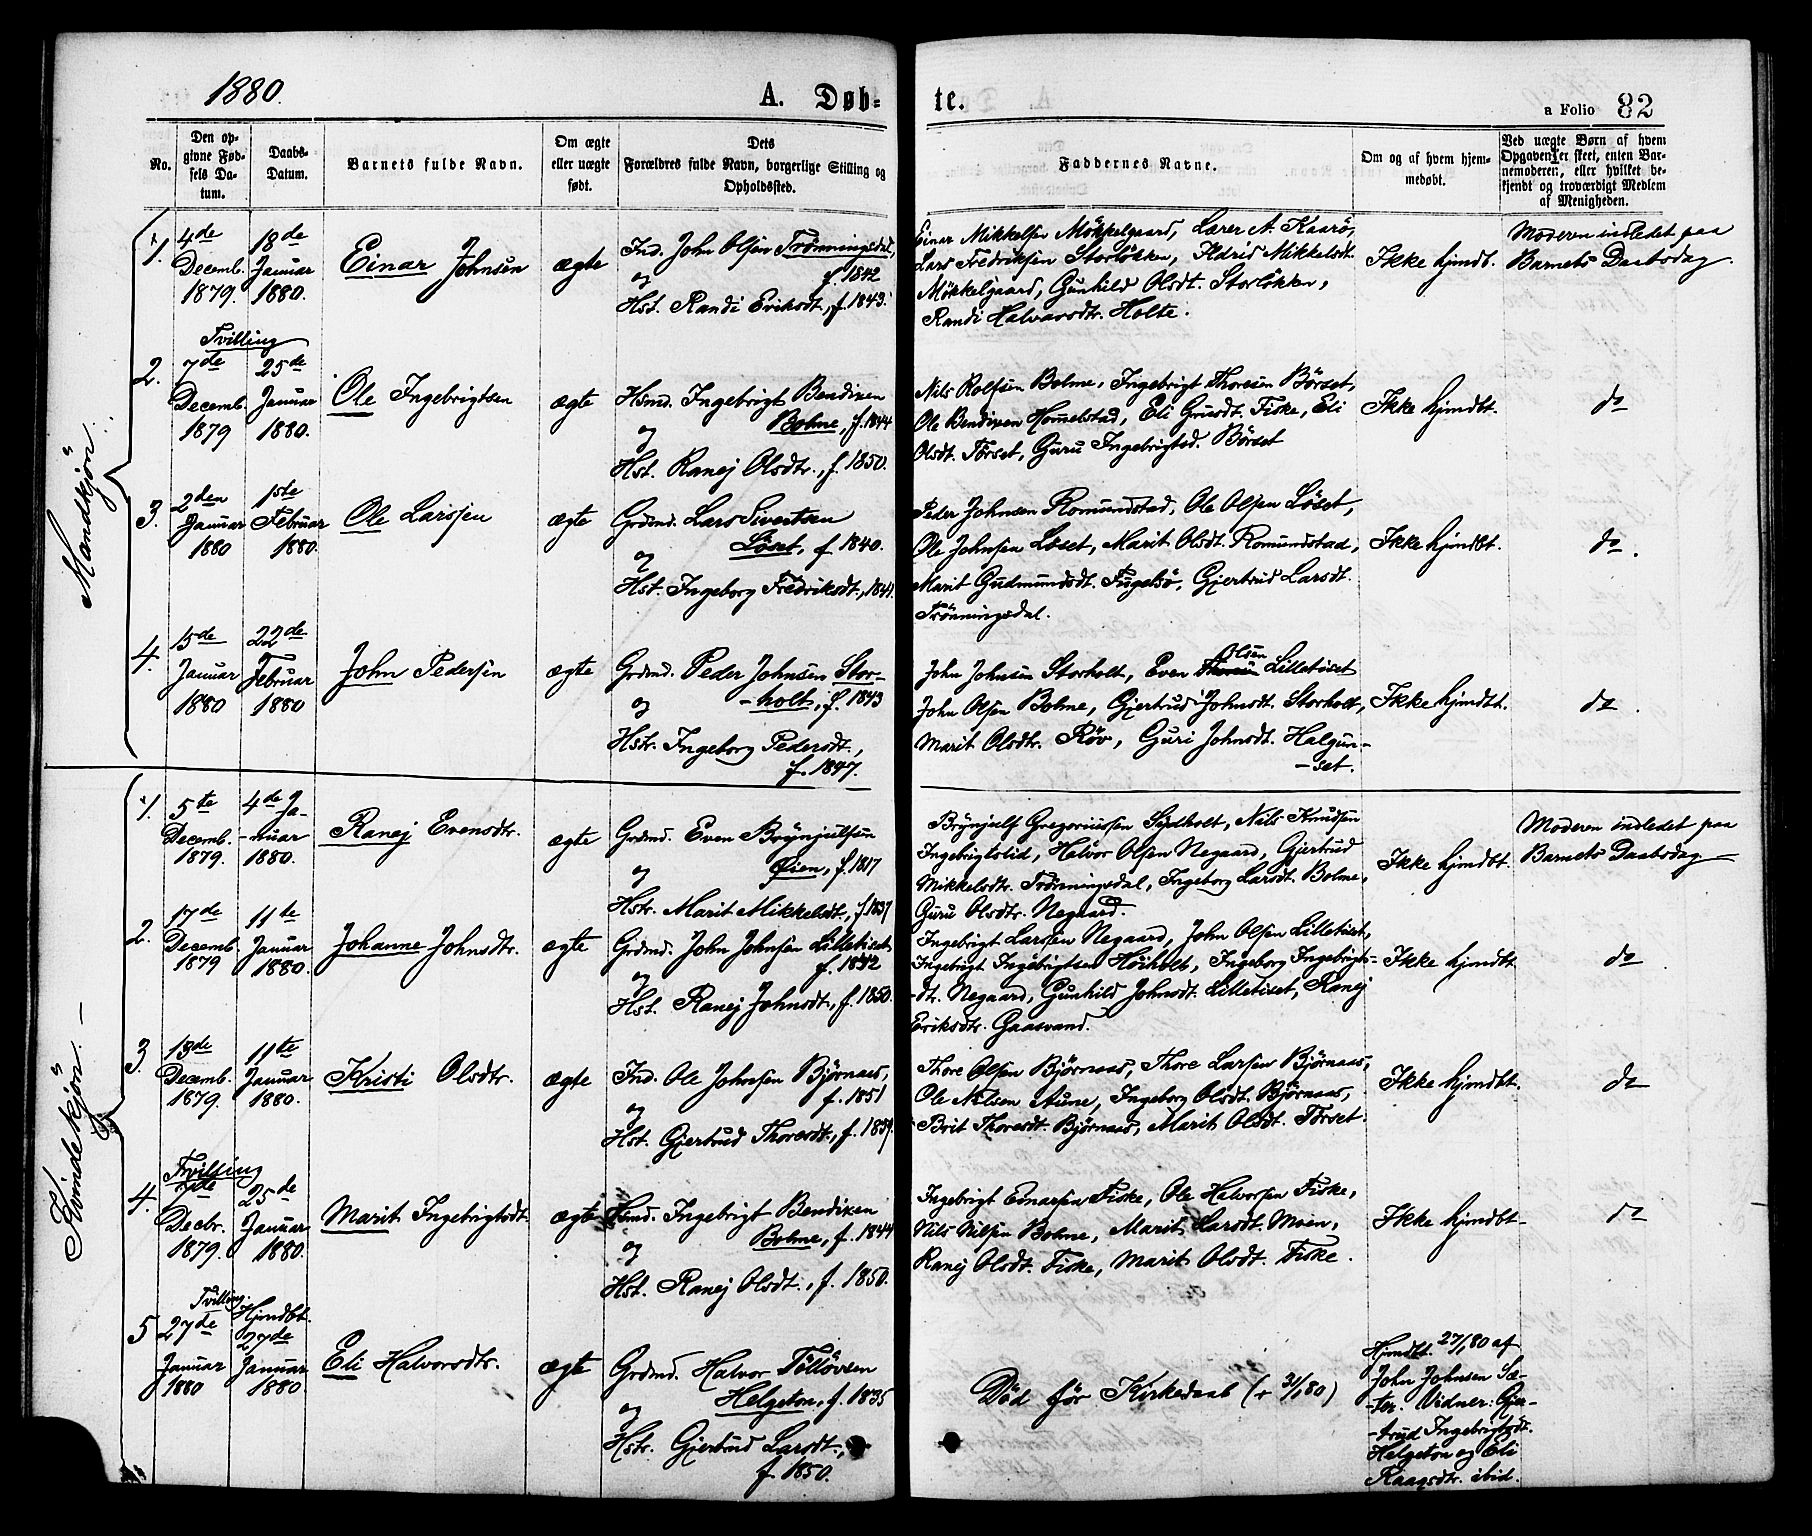 1880.
A. Døb-
te.
a Folio 82
No.
Den op-
givne Fød-
sels Da-
tum.
Daabs-
Datum.
Barnets fulde Navn.
Om ægte
eller uægte
født.
Dets
Forældres fulde Navn, borgerlige Stilling og
Opholdssted.
Faddernes Navne.
Om og af hvem hjem-
medøbt.
Ved uægte Børn af hvem
Opgaven er skeet, enten Bar-
nemoderen, eller hvilket be-
kjendt og troværdigt Medlem
af Menigheden.
Mandkjön.
1.
4de
Decemb.
1879.
18de
Januar
1880.
Einar Johnsen
ægte
Ind. John Olsen Trönningsdal,
f. 1842
og
Hst. Randi Eriksdt., f. 1843.
Einar Mikkelsen Mökkelgaard, Lærer A. Kaarö,
Lars Fredriksen Storlökken, Ildrid Mikkelsdt.
Mökkelgaard, Gunhild Olsdt. Storlökken,
Randi Halvorsdtr. Holte.
Ikke hjmdb.
Moderen indledet paa
Barnets Daabsdag.
2.
Tvilling
7de
Decemb.
1879
25de
Januar
1880.
Ole Ingebrigtsen
ægte
Hsmd. Ingebrigt Bendixen
Bolme, f. 1844
og
Hst. Ranej Olsdtr., f. 1850.
Nils Rolfsen Bolme, Ingebrigt Thoresen Börset,
Ole Bendixen Hommelstad, Eli Grusdt. Fiske, Eli
Olsdt. Törset, Guru Ingebrigtsd. Börset
Ikke hjmdbt.
do
3.
2den
Januar
1880
1ste
Februar
1880.
Ole Larssen
ægte
Grdmd. Lars Sivertsen
Löset, f. 1840.
og
Hst. Ingeborg Fredriksdt., 1841.
Peder Johnsen Romundstad, Ole Olsen Löset,
Ole Johnsen Löset, Marit Olsdt. Romundstad,
Marit Gudmundsdt. Fugelsö, Gjertrud Larsdt.
Trönningsdal.
Ikke hjmdbt.
do.
4.
15de
Januar
1880
22de
Februar
1880
John Pedersen
ægte
Grdmd. Peder Johnsen Stor-
-holt, f. 1843
og
Hstr. Ingeborg Pedersdt.,
f. 1847.
Olsen
John Johnsen Storholt, Even Thoresen Lilletöset
John Olsen Bolme, Gjertrud Johnsdt. Storholt,
Marit Olsdtr. Röv, Guri Johnsdt. Halgun-
-set.
Ikke hjmdbt.
do.
Kvindekjön.
1.
5te
Decemb.
1879.
4de Ja-
-nuar
1880.
Ranej Evensdtr.
ægte
Grdmd. Even Brÿnjulfsen
Øien, f. 1817
og
Hstr. Marit Mikkelsdt., f. 1837
Brÿnjulf Gregoriussen Sydholt, Nils Knudsen
Ingebrigtslid, Halvor Olsen Negaard, Gjertrud
Mikkelsdtr. Trönningsdal, Ingeborg Larsdt. Bolme,
Guru Olsdtr. Negaard.
Ikke hjmdbt.
Moderen indledet paa
Barnets Daabsdag
2.
17de
Decemb.
1879
11te
Januar
1880.
Johanne Johnsdtr.
ægte
Grdmd. John Johnsen Lilletöset
f. 1842
og
Hst. Ranej Johnsdt., f. 1850.
Ingebrigt Larssen Negaard, John Olsen Lilletöset,
Ingebrigt Ingebrigtsen Höiholt, Ingeborg Ingebrigts-
-dt. Negaard, Gunhild Johnsdt. Lilletöset, Ranej
Eriksdtr. Gaasvand.
Ikke hjmdbt
do
3
13de
Decemb.
1879.
11te
Januar
1880.
Kristi Olsdtr.
ægte
Ind. Ole Johnsen Björnaas,
f. 1851
og
Hst. Gjertrud Thoresdt., f. 1857.
Thore Olsen Björnaas, Thore Larsen Björnaas,
Ole Nilsen Aune, Ingeborg Olsdt. Björnaas,
Brit Thoresdt. Björnaas, Marit Olsdt. Törset.
Ikke hjmdbt.
do
4.
Tvilling
7de
Decbr.
1879.
25de
Januar
1880.
Marit Ingebrigtsdt.
ægte
Hsmd. Ingebrigt Bendixen
Bolme, f. 1844
og
Hst. Ranej Olsdt., f. 1850.
Ingebrigt Einarsen Fiske, Ole Halvorsen Fiske,
Nils Nilsen Bolme, Marit Larsdt. Moen,
Ranej Olsdt. Fiske, Marit Olsdt. Fiske.
Ikke hjmdbt
do
5
Tvilling.
27de
Januar
1880
Hjmdbt.
27de
Januar
1880.
Eli Halvorsdtr.
ægte
Grdmd. Halvor Tölløvsen
Helgeton, f. 1835
og
Hstr. Gjertrud Larsdt.,
f. 1850.
Död för Kirkedaab (+ 31/1 80)
Hjmdbt. 27/1 80 af
John Johnsen Sæ-
-ter. Vidner: Gjer-
-trud Ingebrigtsdtr.
Helgeton og Eli
Raagsdtr. ibid.